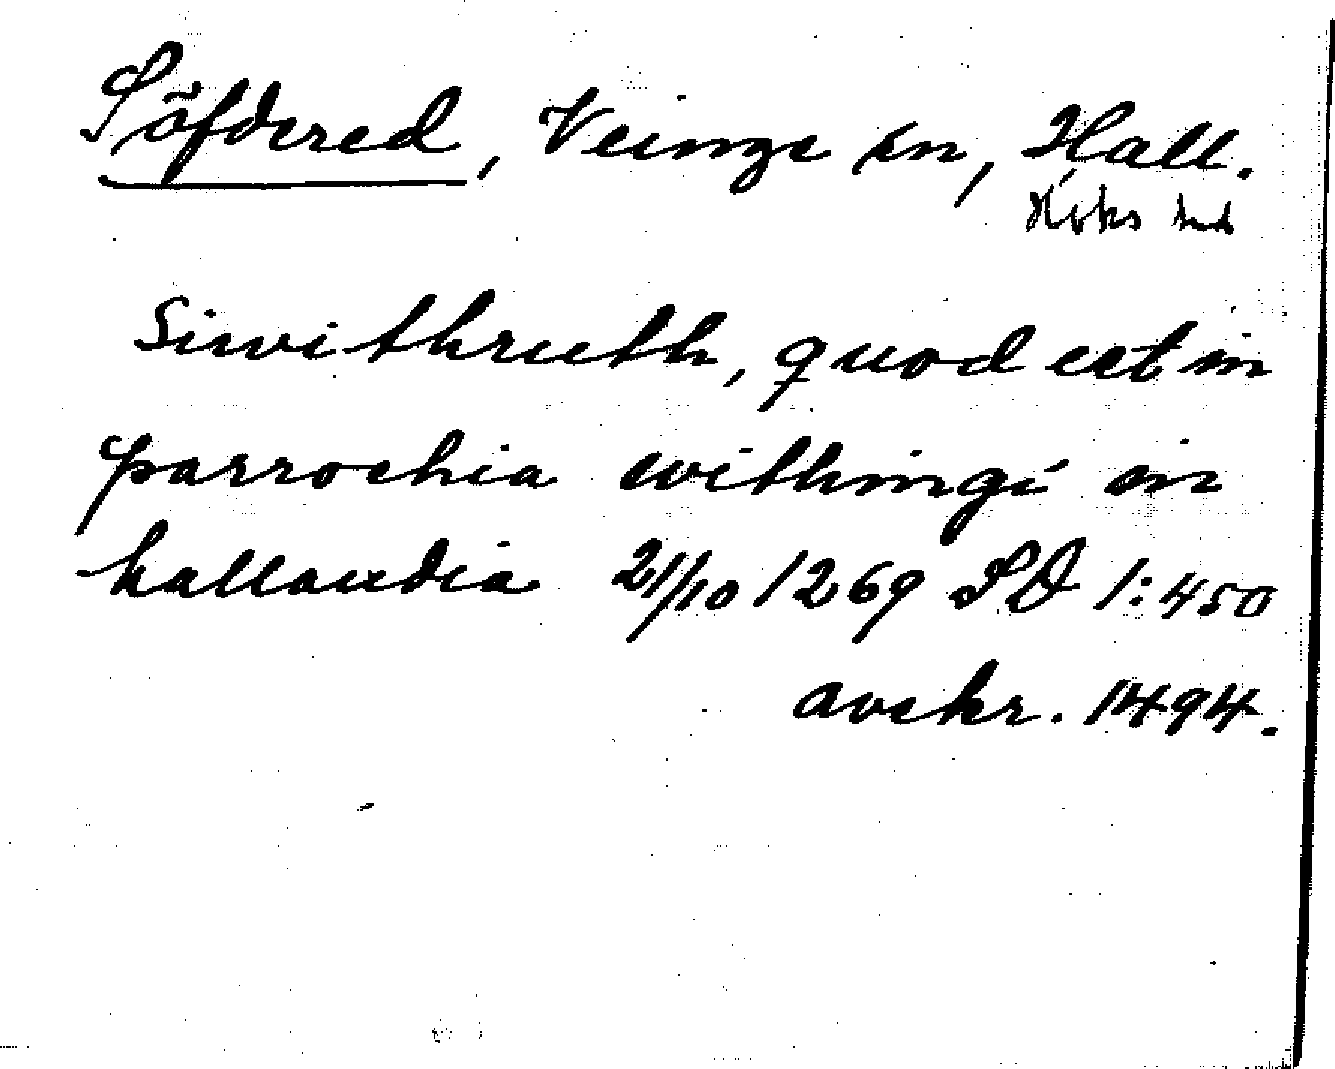 Söfdered, Veinge sn, Hall.
Höks hd
Siwithruth, quod est in
parrochia withingi in
hallandia 21/10 1269 SD 1:450
avskr. 1494.